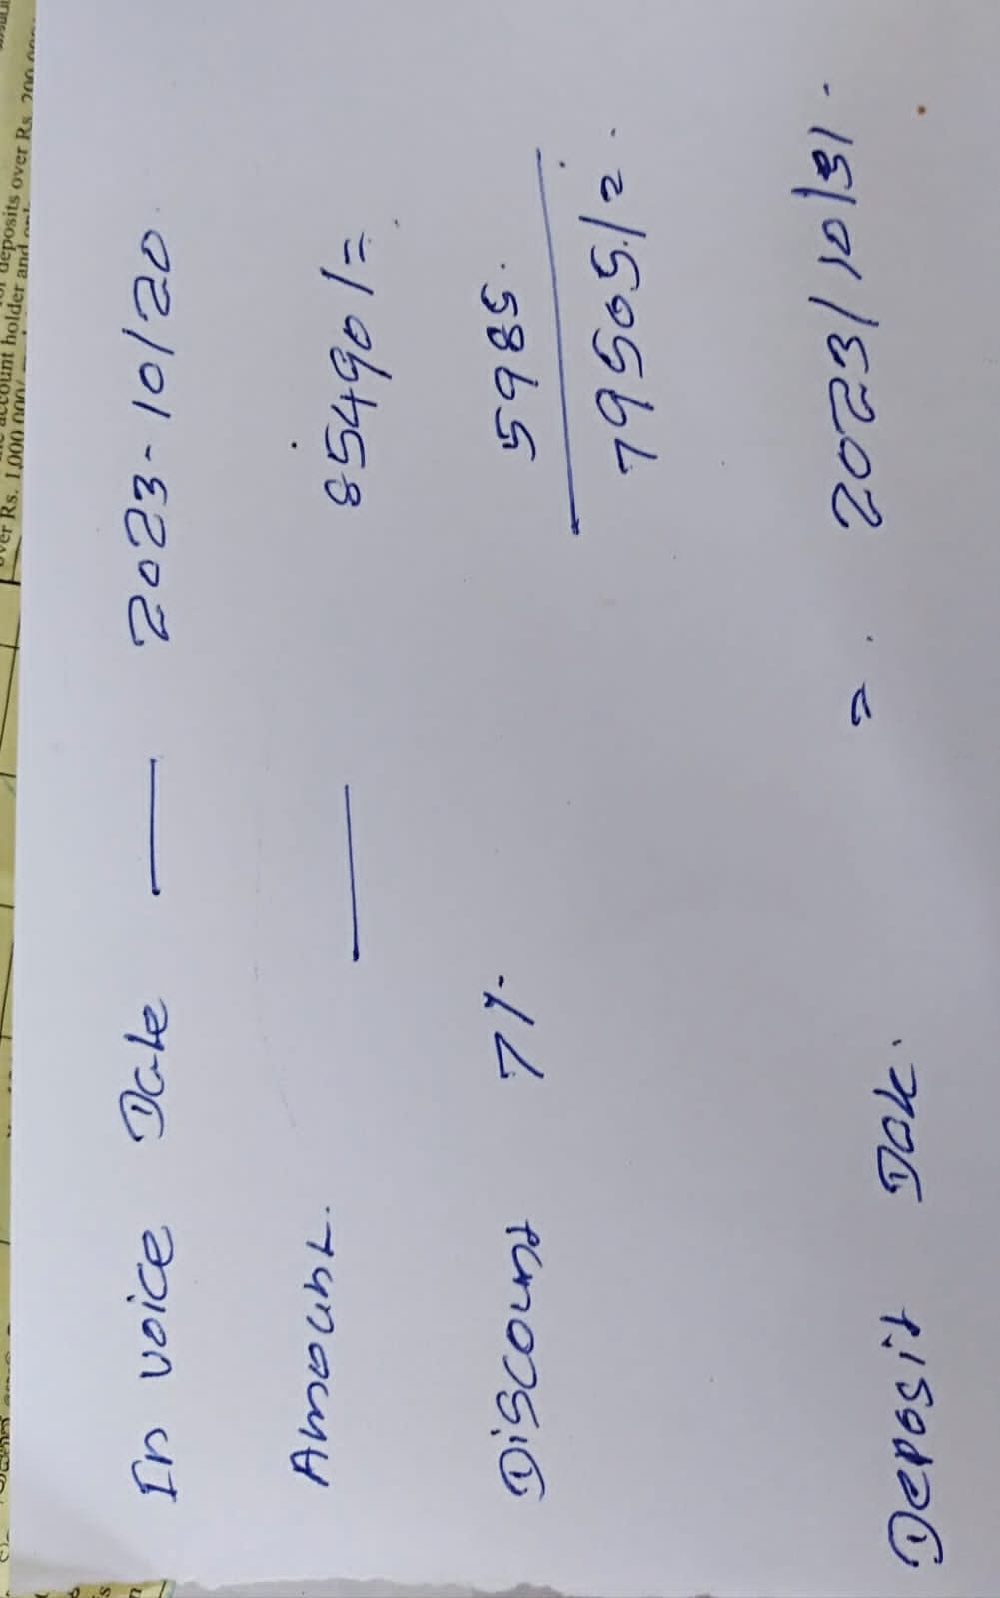 over Rs. 1,000,000/
account holder and only
deposits over Rs. 200,000
In voice Date — 2023-10/20
Amount. — 85490/=
Discount 7% 5985.
79505/=.
Deposit Date. = 2023/10/31.